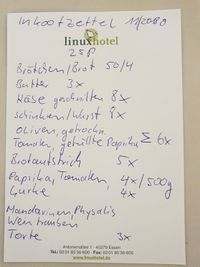 Inkooftzettel 11/2080
linuxhotel
25P
Brötchen/Brot 50/4
Butter 3x
Käse geschnitten 8x
schinken/Wurst 8x
oliven, getrockn.
Tomaten, gefüllte Paprika Σ 6x
Brotaufstrich 5x
Paprika, Tomaten, 4x/500g
Gurke 4x
Mandarinen, Physalis
Weintrauben
Torte 3x
Antonienallee 1 · 45279 Essen
Tel.: 02 01 85 36-600 · Fax: 02 01 85 36-605
www.linuxhotel.de